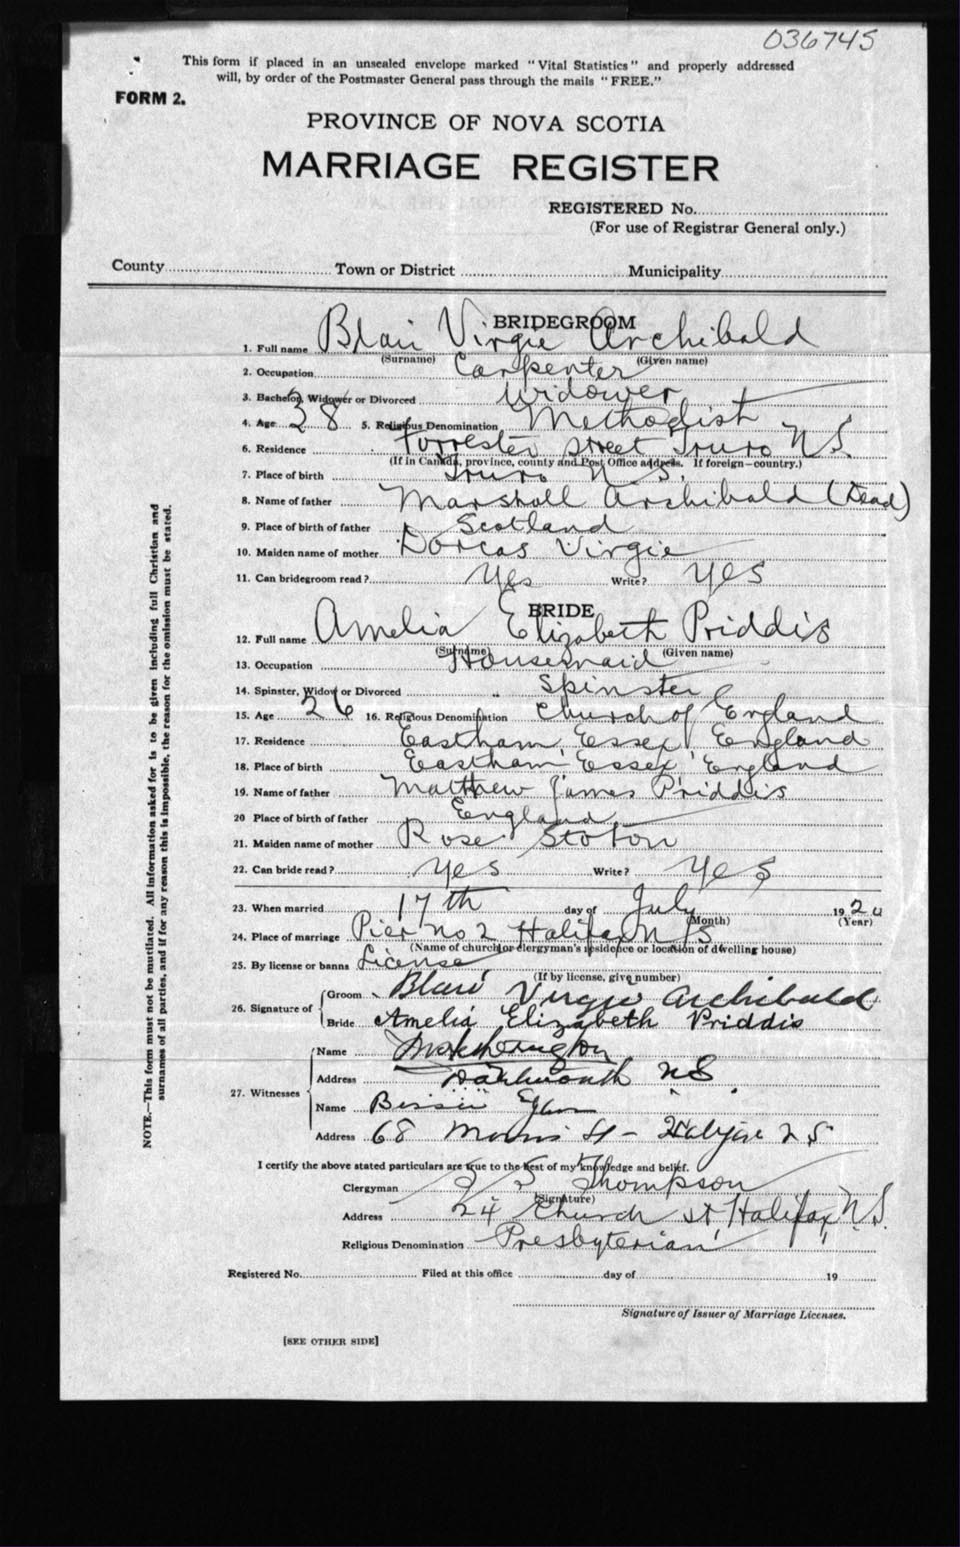 036745
This form if placed in an unsealed envelope marked "Vital Statistics" and properly addressed
will, by order of the Postmaster General pass through the mails "FREE."
FORM 2.
PROVINCE OF NOVA SCOTIA
MARRIAGE REGISTER
REGISTERED No.
(For use of Registrar General only.)
County Town or District Municipality
BRIDEGROOM
1. Full name Blair Virgie Archibald
(Surname) (Given name)
2. Occupation Carpenter
3. Bachelor, Widower or Divorced Widower
4. Age 38 5. Religious Denomination Methodist
6. Residence Forrester Street Truro N.S.
(If in Canada, province, county and Post Office address. If foreign—country.)
7. Place of birth Truro N.S.
8. Name of father Marshall Archibald (Dead)
9. Place of birth of father Scotland
10. Maiden name of mother Dorcas Virgie
11. Can bridegroom read? Yes Write? Yes
BRIDE
12. Full name Amelia Elizabeth Priddis
(Surname) (Given name)
13. Occupation Housemaid
14. Spinster, Widow or Divorced Spinster
15. Age 26 16. Religious Denomination Church of England
17. Residence Eastham, Essex, England
18. Place of birth Eastham Essex England
19. Name of father Matthew James Priddis
20 Place of birth of father England
21. Maiden name of mother Rose
22. Can bride read? yes Write? Yes
23. When married 17th day of July 1920
(Month) (Year)
24. Place of marriage Pier no 2 Halifax N S
(Name of church or clergyman's residence or location of dwelling house)
25. By license or banns License
(If by license, give number)
26. Signature of Groom Blair Virgie Archibald
Bride Amelia Elizabeth Priddis
27. Witnesses
Name
Address Dartmouth N S.
Name Bessie
Address 68 Morris St - Halifax N S
I certify the above stated particulars are true to the best of my knowledge and belief.
Clergyman Thompson
(Signature)
Address 24 Church St, Halifax, N.S.
Religious Denomination Presbyterian
Registered No. Filed at this office day of 19
Signature of Issuer of Marriage Licenses.
[SEE OTHER SIDE]
NOTE.—This form must not be mutilated. All information asked for is to be given including full Christian and
surnames of all parties, and if for any reason this is impossible, the reason for the omission must be stated.